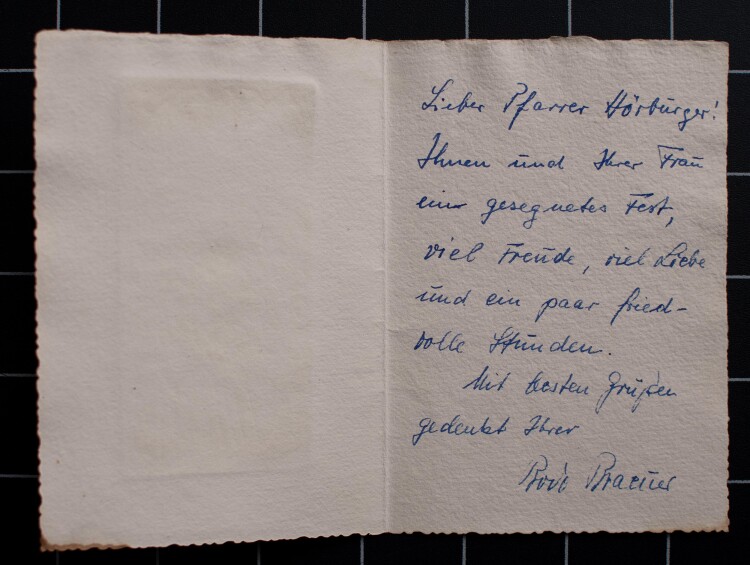 Lieber Pfarrer Hörburger!
Ihnen und Ihrer Frau
ein gesegnetes Fest,
viel Freude, viel Liebe
und ein paar fried-
volle Stunden.
Mit besten Grüßen
gedenkt Ihrer
Bodo